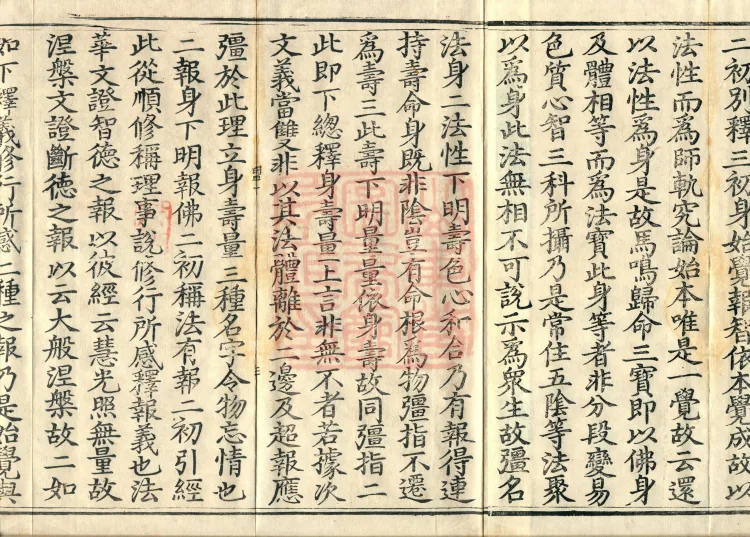 二初別釋三初身始覺報智依本覺成故以
法性而爲師軌究論始本唯是一覺故云還
以法性爲身是故馬鳴歸命三寶即以佛身
及體相等而爲法寶此身等者非分段變易
色質心智三科所攝乃是常住五陰等法聚
以爲身此法無相不可說示爲衆生故彊名
法身二法性下明壽色心和合乃有報得連
持壽命身既非陰豈有命根爲物彊指不遷
爲壽三此壽下明量量依身壽故同彊指二
此即下總釋身壽量上言非無不者若據次
文義當雙非以其法體離於二邊及超報應
彊於此理立身壽量三種名字令物忘情也
二報身下明報佛二初稱法有報一初引經
此從順修稱理事說修行所感釋報義也法
華文證智德之報以彼經云慧光照無量故
涅槃文證斷德之報以云大般涅槃故二如
如下釋義修行所感二種之報乃是始覺與